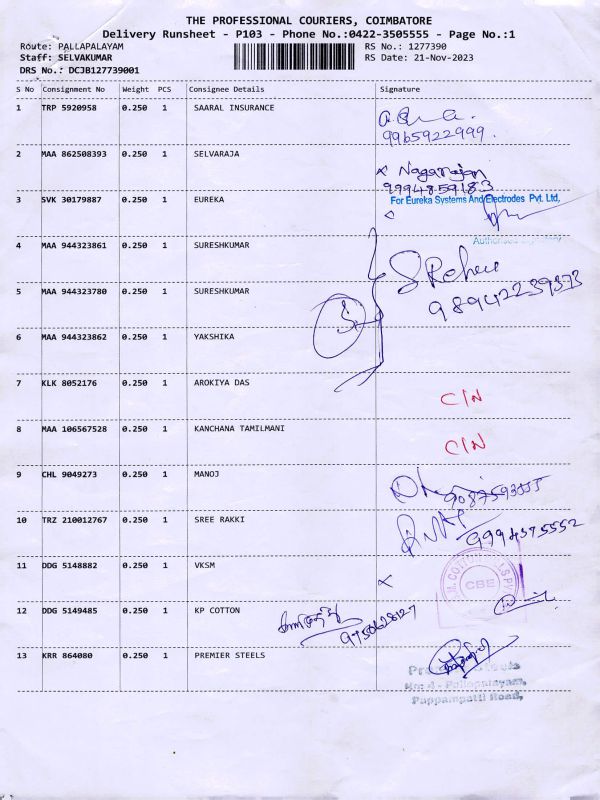 THE PROFESSIONAL COURIERS, COIMBATORE
Delivery Runsheet - P103 - Phone No.:0422-3505555 - Page No.:1
Route: PALLAPALAYAM RS No.: 1277390
Staff: SELVAKUMAR RS Date: 21-Nov-2023
DRS No.: DCJB127739001
S No Consignment No Weight PCS Consignee Details Signature
1 TRP 5920958 0.250 1 SAARAL INSURANCE
9965922999.
2 MAA 862508393 0.250 1 SELVARAJA
x Nagarajan
9994859183
3 SVK 30179887 0.250 1 EUREKA
For Eureka Systems And Electrodes Pvt. Ltd,
Authorised Signatory
4 MAA 944323861 0.250 1 SURESHKUMAR
5 MAA 944323780 0.250 1 SURESHKUMAR
98942239373
6 MAA 944323862 0.250 1 YAKSHIKA
7 KLK 8052176 0.250 1 AROKIYA DAS
C/N
8 MAA 106567528 0.250 1 KANCHANA TAMILMANI
C/N
9 CHL 9049273 0.250 1 MANOJ
10 TRZ 210012767 0.250 1 SREE RAKKI
9994575552
11 DDG 5148882 0.250 1 VKSM
x
CBE
12 DDG 5149485 0.250 1 KP COTTON
9750628127
13 KRR 864080 0.250 1 PREMIER STEELS
No: 4 - Pallapalayam,
Pappampatti Road,